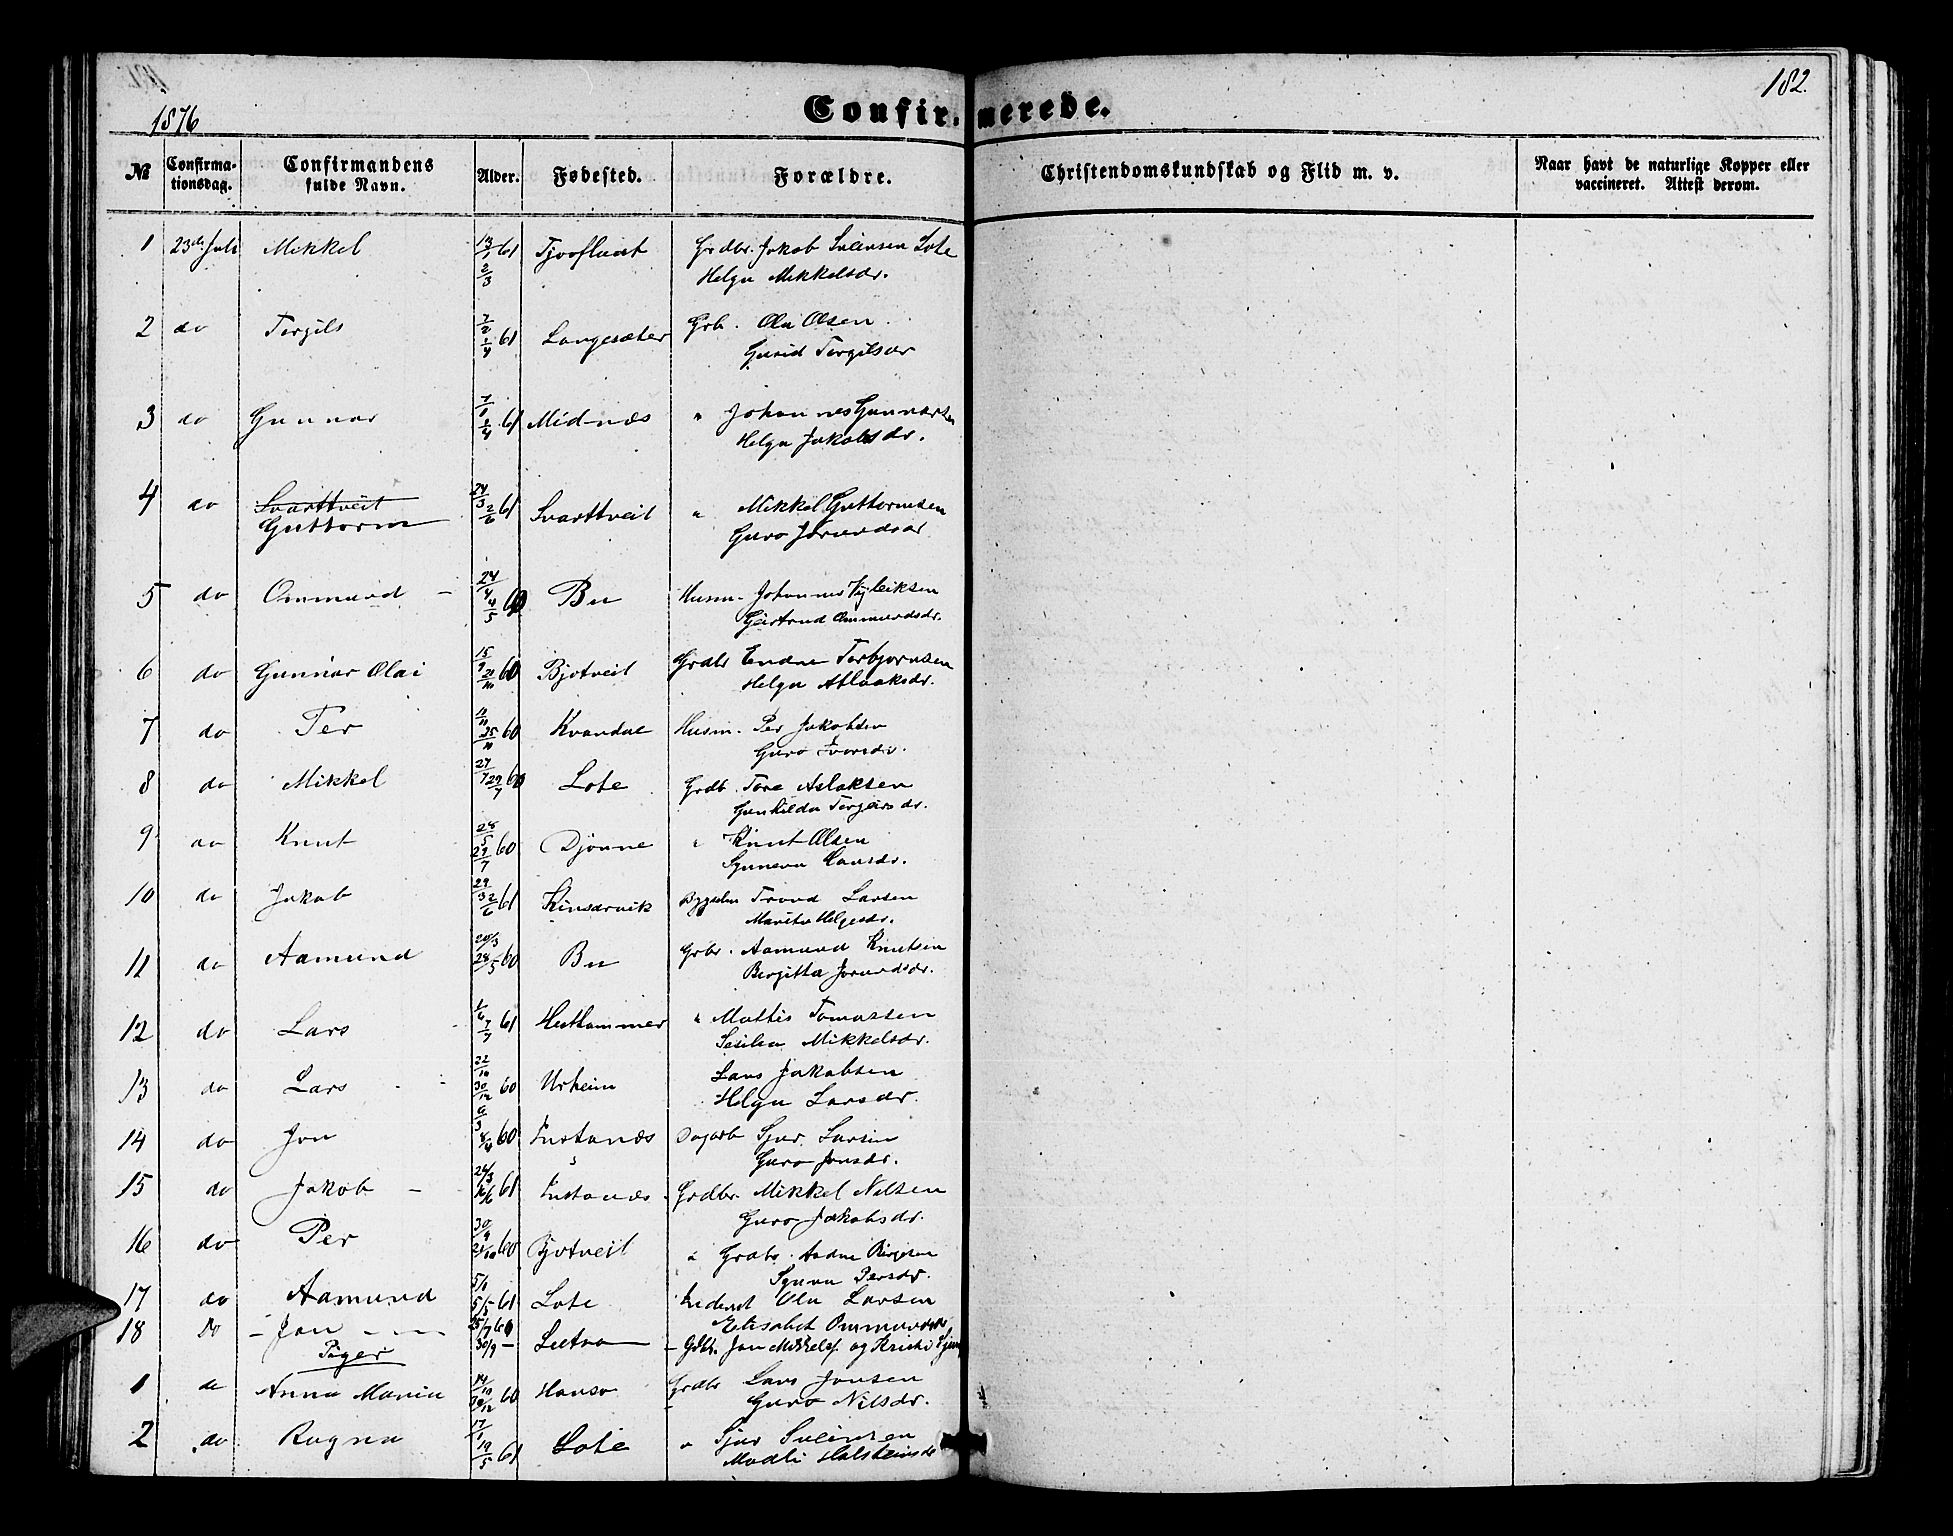 182.
1876
Confirmerede.
№ Confirmationsdag. Confirmandens fulde Navn. Alder. Fødested. Forældre. Christendomskundskab og Flid m. v. Naar havt de naturlige Kopper eller vaccineret. Attest derom.
1 23de Juli Mikkel 13/1 61 2/3 Tjoflaat Grdbr. Jakob Sveinsen Lote
Helga Mikkelsdr.
2 do Torgils 61 Langesæter Grb. Ola Olsen
Gurid Torgilsdr
3 do Gunnar 61 Midnæs " Johannes Gunnarsen
Helga Jakobsdr.
4 do Svarttveit 24/3 2/6 61 Svarttveit " Mikkel Guttormsen
Guttorm Guro Jørundsdr
5 do Ommund 24/4 Bu Husm. Johannes Vikleiksen
Geirtrud Ommundsdr.
6 do Gunnar Olai 15/9 21/10 60 Bjotveit Grdbr Endre Torbjørnsen
Helga Aslaksdr.
7 do Per 60 Kvandal Husm. Per Jakobsen
Guro Ivarsdr.
8 do Mikkel 27/7 29/7 60 Lote Grdb. Tore Aslaksen
Gunhilda Torgeirsdr.
9 do Knut 28/5 29/7 60 Djønne " Knut Olsen
Synneva Larsdr.
10 do Jakob 29/3 2/6 61 Kinsarvik Bygselm Trond Larsen
Marita Helgesdr.
11 do Aamund 20/3 28/5 60 Bu Grbr. Aamund Knutsen
Birgitta Jørundsdr.
12 do Lars 1/6 7/7 61 Hesthammer " Mattis Tomassen
Sesilia Mikkelsdr.
13 do Lars 22/10 30/12 60 Urheim Lars Jakobsen
Helga Larsdr.
14 do Jon 60 Instanæs Dagarb Sjur Larsen
Guro Jonsdr.
15 do Jakob 61 Instanæs Grdbr. Mikkel Nilsen
Guro Jakobsdr.
16 do Per 30/9 60 Bjotveit " Grdbr. Birgesen
Persdr.
17 do Aamund 5/1 5/5 61 Lote Ola Larsen
Elisabet Ommundsdr
18 Do – Jon 60 30/9 – – Jon Mikkels. og Kristi
Piger
1 do Anna Maria 14/10 60 Hanso Grdbr Lars Jonsen
Guro Nilsdr.
2 do Ragna 17/1 19/5 61 Lote " Sjur Sveinsen
Madli Halsteinsdr